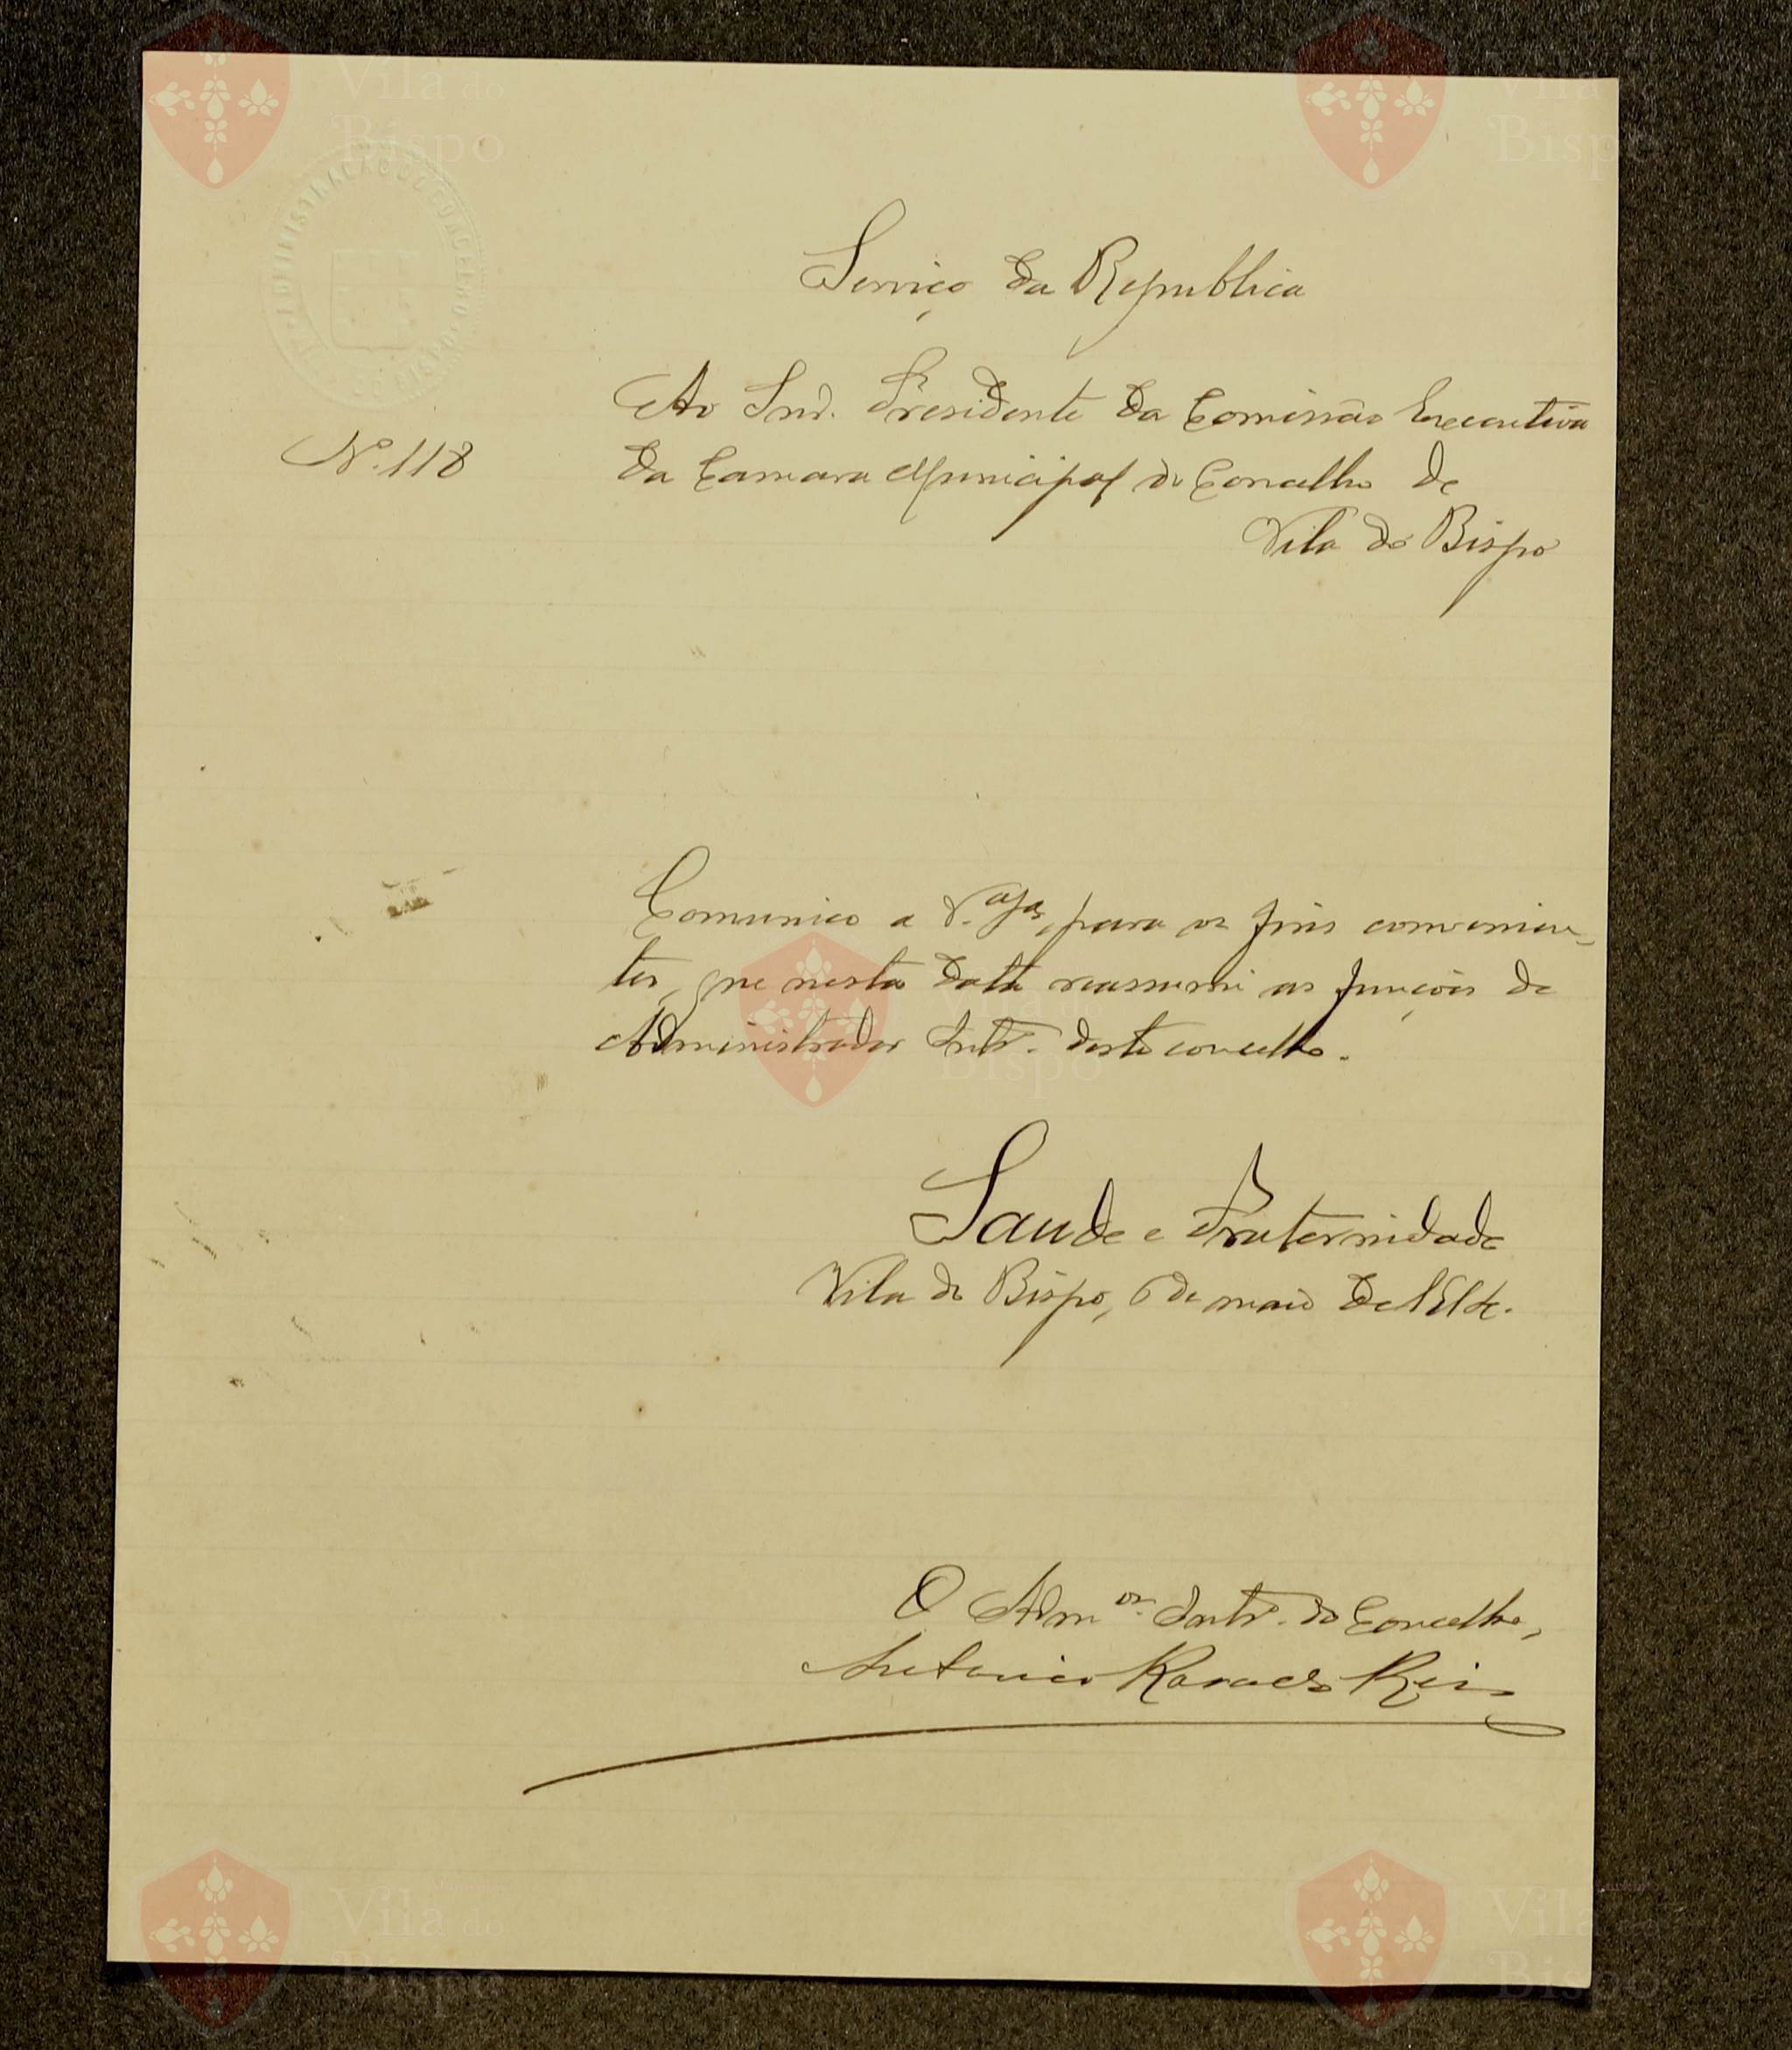 Vila do
Bispo
Vila
Bispo
ADMINISTRAÇÃO DO CONCELHO
BISPO
Serviço da Republica
Nº. 118
Ao Snr. Presidente da Comissão Executiva
da Camara Municipal do Concelho de
Vila do Bispo
Comunico a V. para os fins convenien-
tes, que nesta data reassumi as funções de
Administrador Intº. deste concelho.
Bispo
Saude e Fraternidade
Vila do Bispo, 6 de maio de
O Admor. Intº. do Concelho,
Antonio Reis
Vila do
Bispo
Vila
Bispo